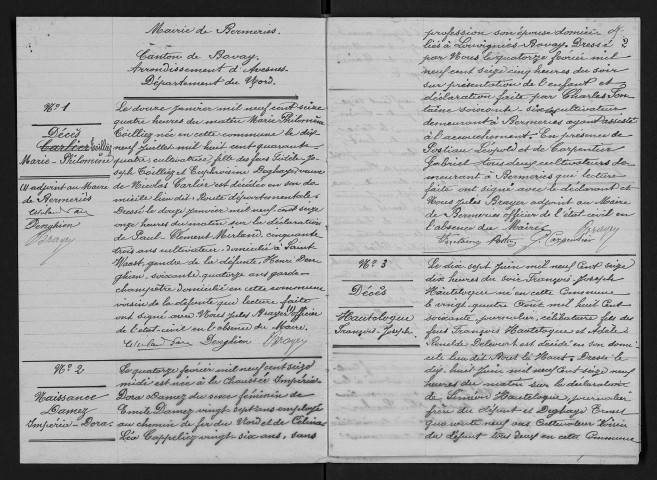 Mairie de Bermeries.
Canton de Bavay.
Arrondissement d'Avesnes
Département du Nord.
N° 1
Décès
Carlier Coilliez
Marie-Philomène
adjoint au Maire
de Bermeries
Deughien
Brayer
Le douze Janvier mil neuf cent seize
quatre heures du matin Marie Philomène
Coilliez née en cette commune le dix
neuf Juillet mil huit cent quarante
quatre cultivatrice fille des feus Fidèle-Jo-
seph Coilliez et Euphrosine Deghaye veuve
de Nicolas Carlier est décédée en son do
micile lieu dit: Route départementale
Dressé le douze Janvier mil neuf cent seize
onze heures du matin sur la déclaration
de Paul Clément Mirland cinquante
trois ans cultivateur domicilié à Saint
Waast, gendre de la défunte, Henri Deu
ghien, soixante quatorze ans garde-
champêtre domicilié en cette commune
voisin de la défunte qui lecture faite
ont signé avec Nous Jules Brayer Officier
de l'état civil en l'absence du Maire.
Deughien Brayer
N° 2
Naissance
Damez
Impéria-Dora.
Le quatorze février mil neuf cent seize
midi est née à la Chaussée Impéria-
Dora Damez du sexe féminin de
Emile Damez vingt sept ans employé
au chemin de fer du Nord et de Célina
Léa Cappeliez vingt-six ans, sans
profession son épouse domici-
liés à Louvignies Bavay. Dressé
par Nous le quatorze février mil
neuf cent seize cinq heures du soir
sur présentation de l'enfant et
déclaration faite par Charles Fon
taine soixante six cultivateur
demeurant à Bermeries ayant assisté
à l'accouchement. En présence de
Postiau Léopold et de Carpentier
Gabriel tous deux cultivateurs de
meurant à Bermeries qui lecture
faite ont signé avec le déclarant et
Nous Jules Brayer adjoint au Maire
de Bermeries officier de l'état civil en
l'absence du Maire. Brayer
Carpentier
2
N° 3
Décès
Hautologue
François-Joseph
Le dix sept Juin mil neuf cent seize
dix heures du soir François-Joseph
Hautologue né en cette Commune
le vingt quatre Août mil huit cent
soixante journalier, célibataire fils des
feus François Hautologue et Adèle
Delwart est décédé en son domi-
cile lieu dit le Haut. Dressé le
dix huit Juin mil neuf cent seize
heures du matin sur la déclaration
de Simon Hautologue, journalier
frère du défunt et Deghaye Ernest
quarante neuf ans Cultivateur Voisin
du défunt tous deux en cette Commune